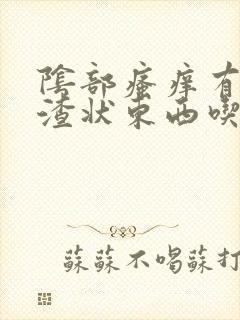 陰部瘙痒有
渣状东西喫
蘇蘇不喝蘇打